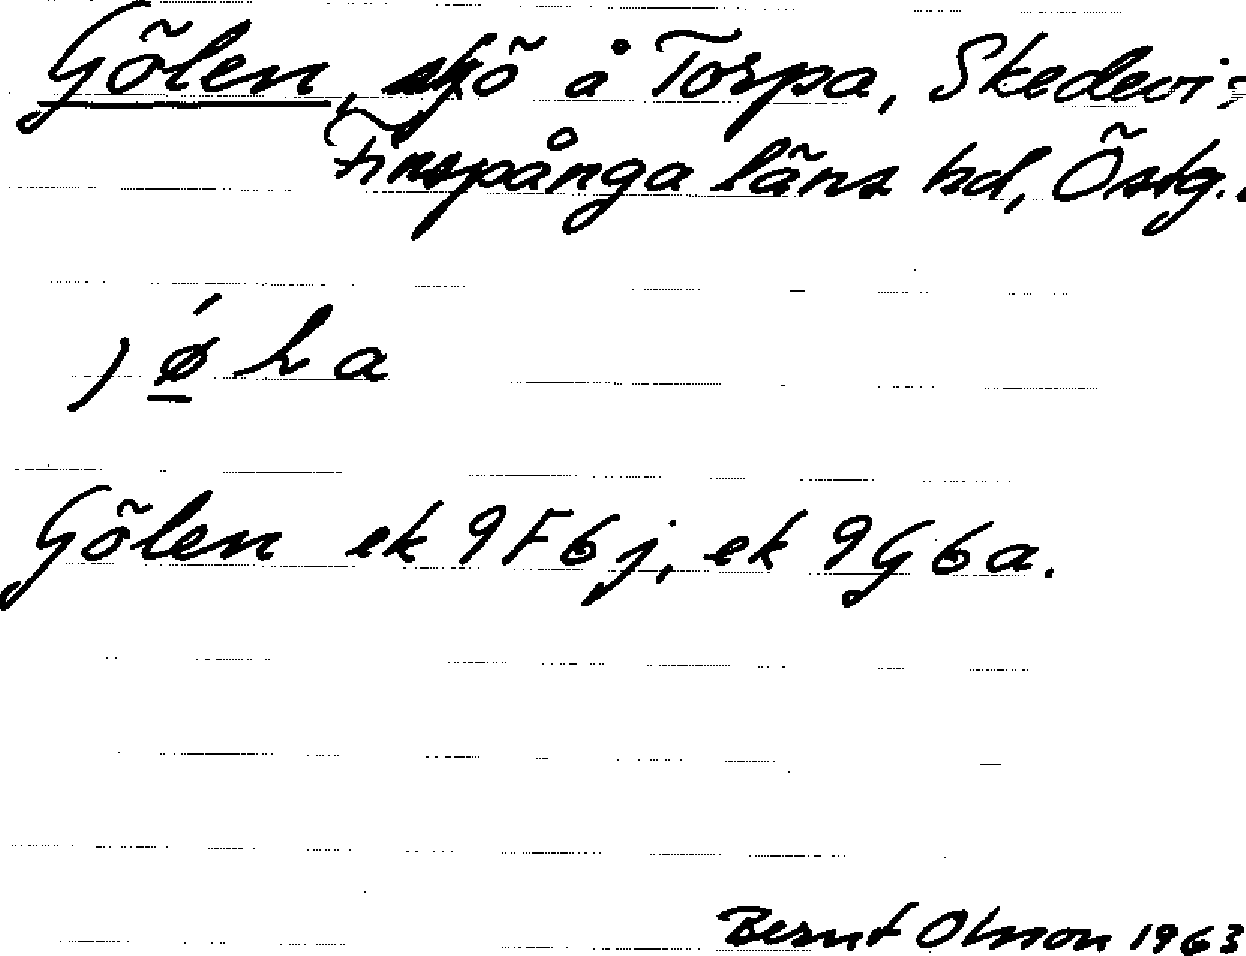 Gölen, sjö å Torpa, Skedevi s
Finspånga läns hd, Östg.
Gölen ek 9F6j, ek 9G6a.
Bernt Olsson 1963